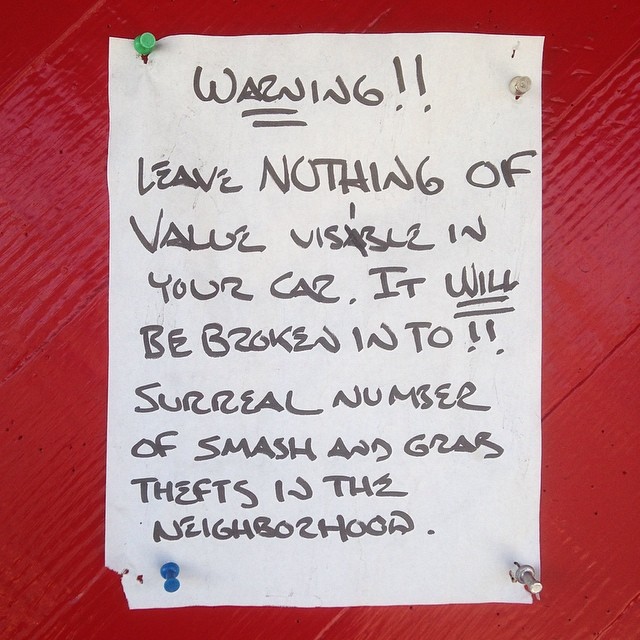 WARNING!!
LEAVE NOTHING OF
VALUE VISIBLE IN
YOUR CAR. IT WILL
BE BROKEN IN TO!!
SURREAL NUMBER
OF SMASH AND GRAB
THEFTS IN THE
NEIGHBORHOOD.